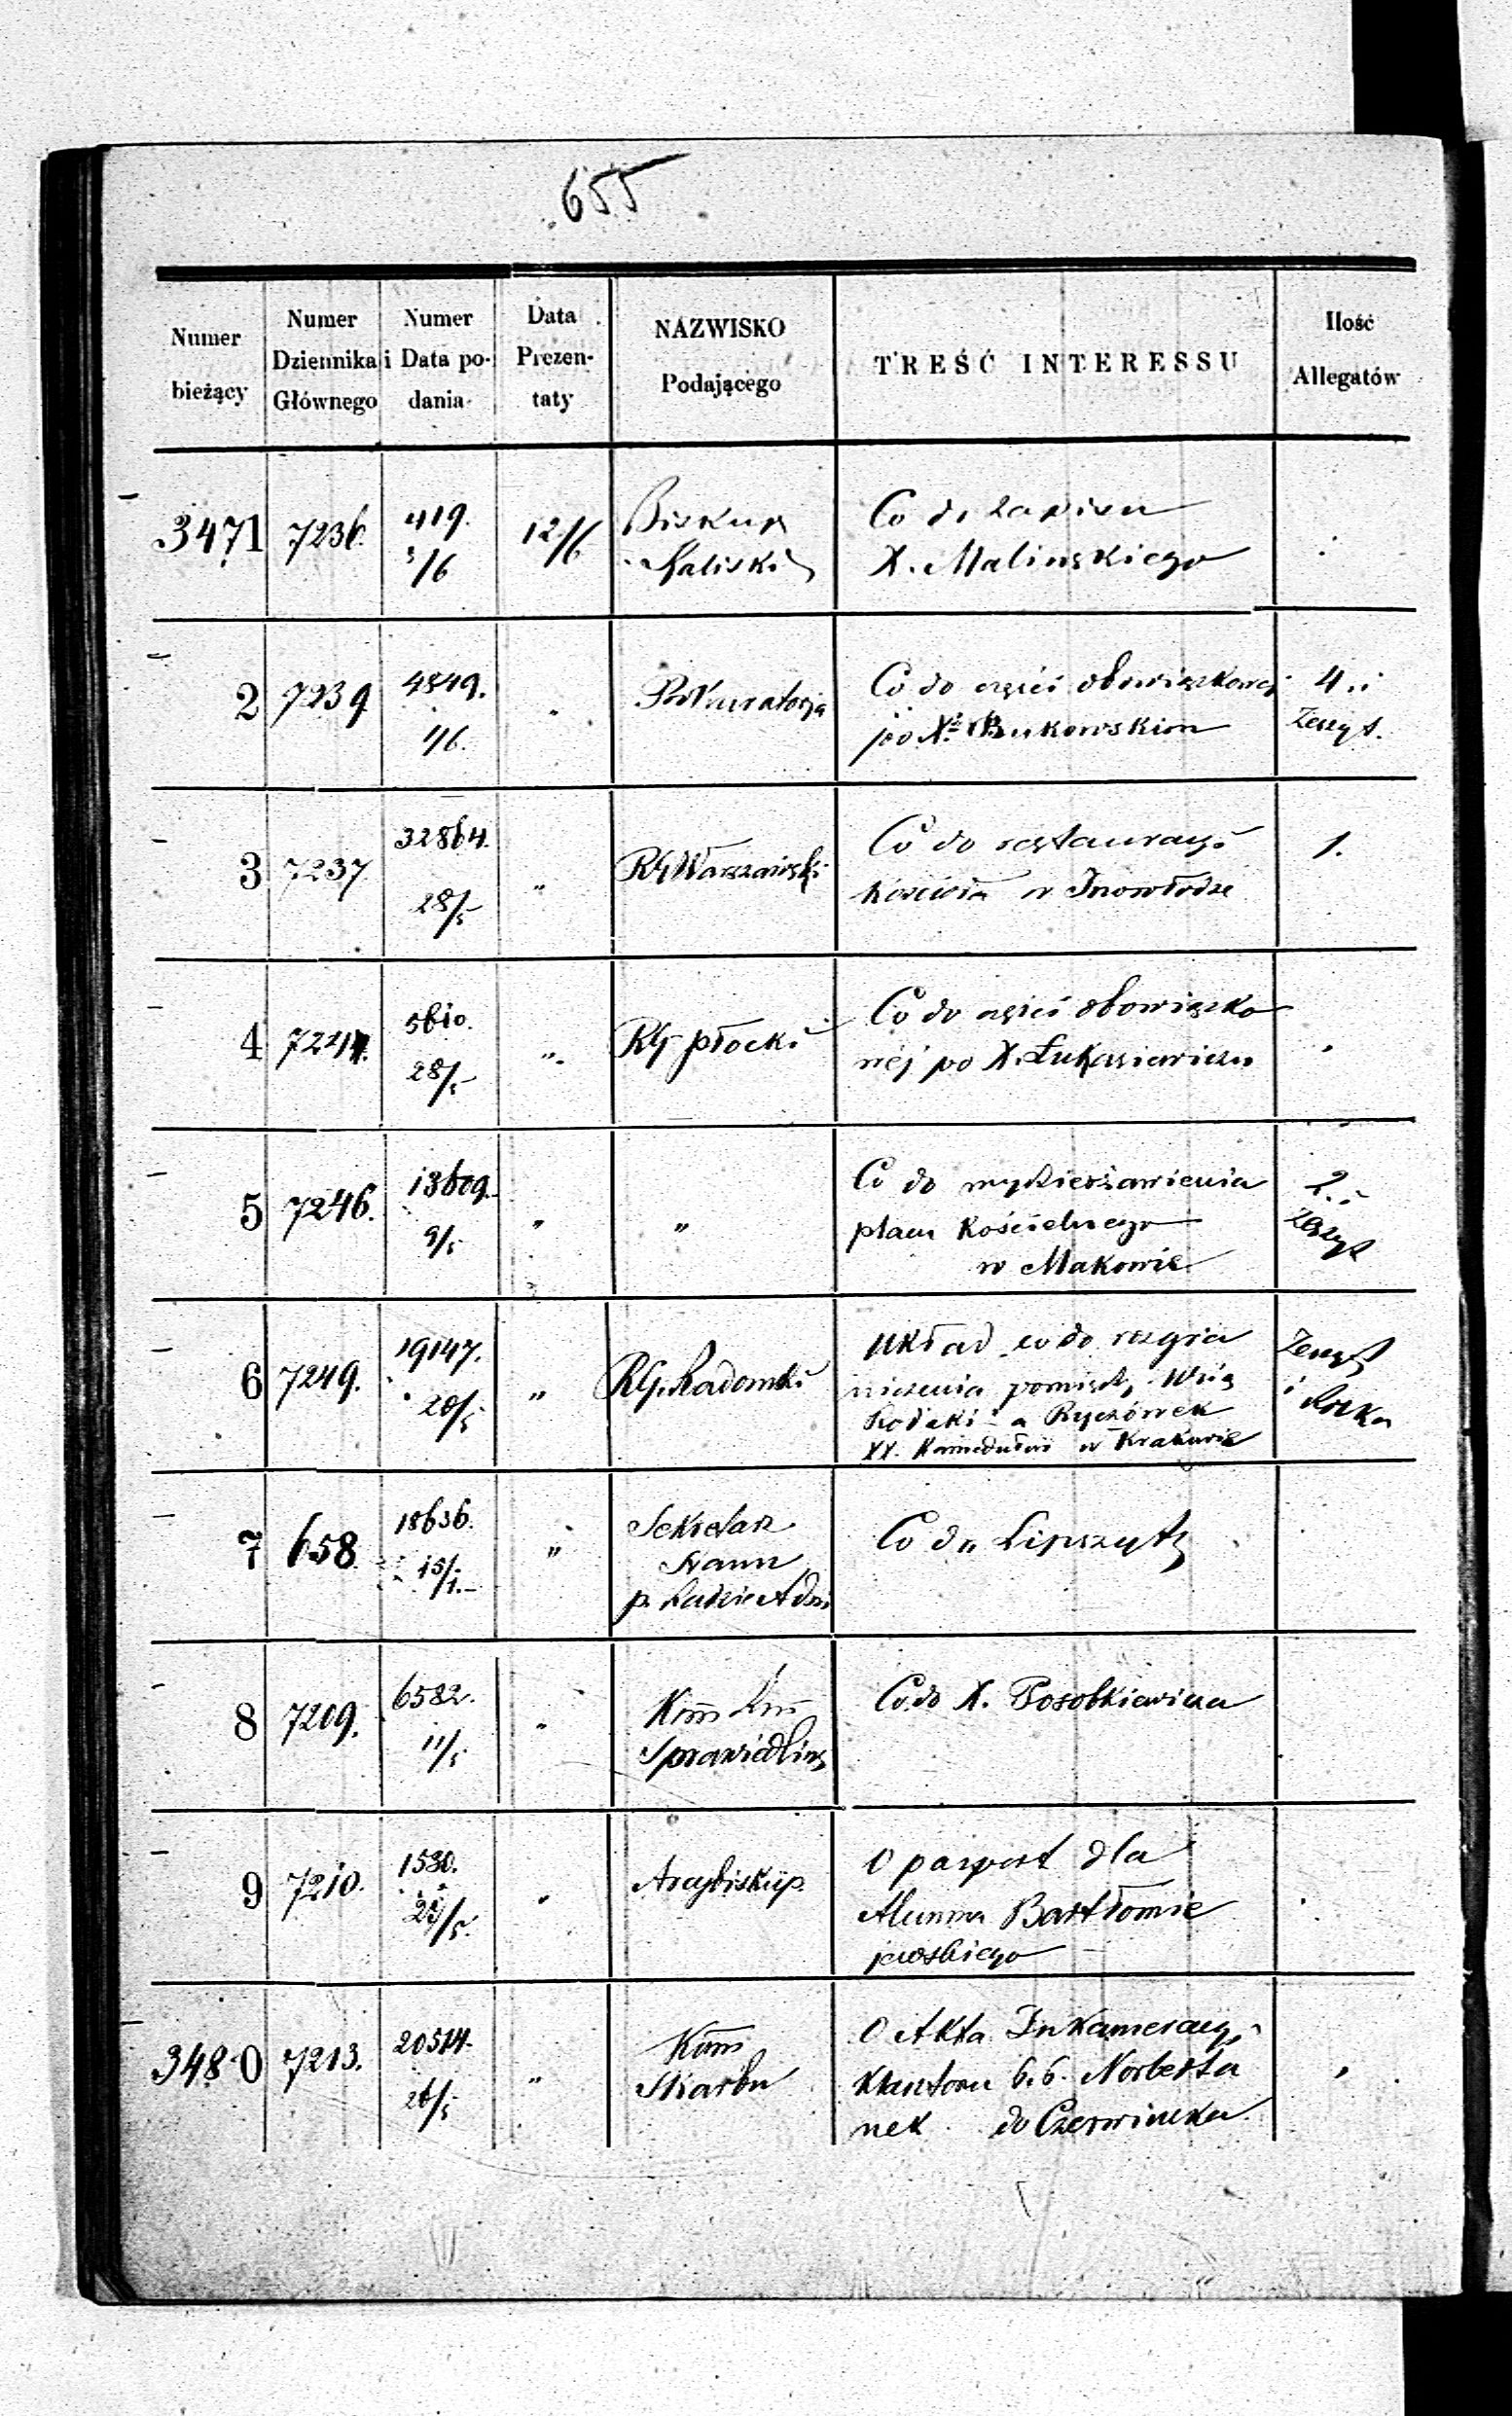 655
Numer bieżący
Numer Dziennika Głównego
Numer i Data podania
Data Prezentaty
NAZWISKO Podającego
TREŚĆ INTERESSU
Ilość Allegatów
3471 7236. 419. 3/6 12/6 Biskup Kaliski
Co do zapisu
X. Malinskiego
2 7239 4849. 1/6. Prokuratorja
Co do części obowiązkowej
po X. Bukowskim
4. i
Zeszyt.
3 7237 32864. 28/5 " RG Warszawski
Co do restauracyi
Kościoła w Inowłodzu
1.
4 5610. 28/5 " RG płocki
Co do części obowiązko
wej po X. Łukasiewiczu
5 7246. 13609. 9/5 " "
Co do wydzierżawienia
placu Kościelnego
w Makowie
2. i
Zeszyt
6 7249. 19147. 20/5 " RG. Radomski
Układ co do rozgra
niczenia pomiędzy Wsią
Rodaki a Ryczówek
XX. Kamedułów w Krakowie
Zeszyt
i
7 658 18636. 15/1. " Sekretarz
Stanu
Co do Lipszytz
8 7209. 6582. 11/5 Kom
Sprawiedliw
Co do X. Posobkiewicza
9 7210. 1530. Arcybiskup.
O paszport dla
Alumna Bartłomie
jewskiego
3480 7213. 20514. 26/5 " Kom
Skarbu
O Akta Inkameracyi
Klasztoru b. b. Norberta
nek do Czerwińska